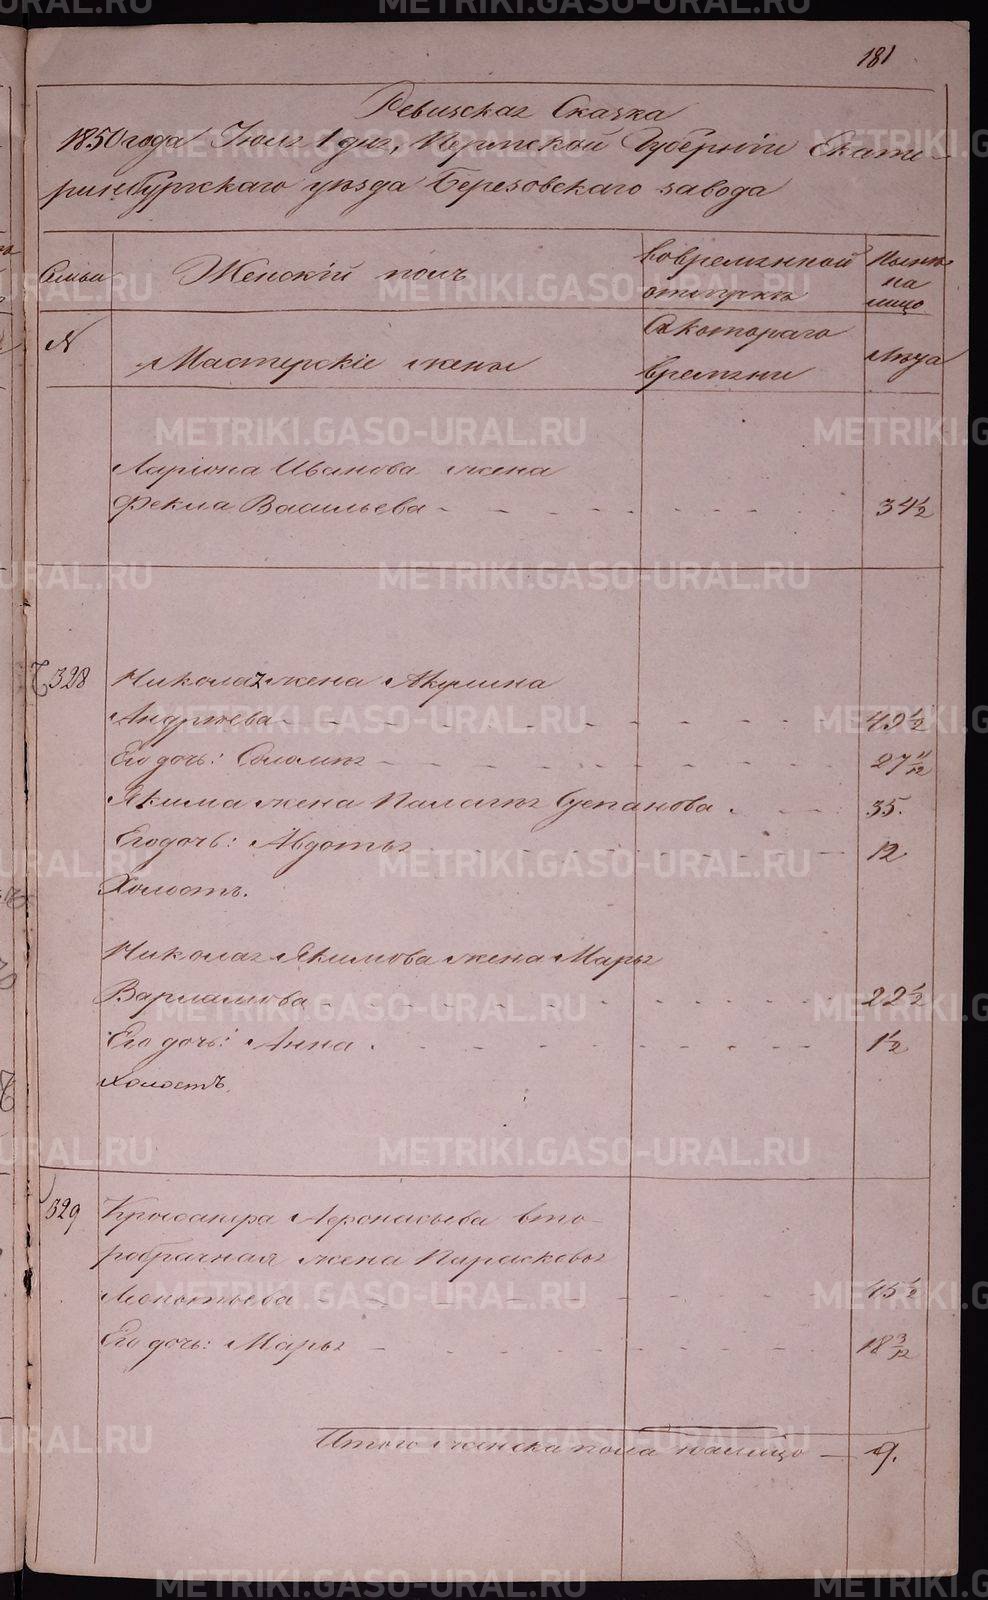 181
Ревизская Сказка
1850 года Июля 1 дня, Пермской Губернии Екате-
ринбургскаго уезда Березовскаго завода
Семьи
Женскій полъ
Вовременной
отлучке
Ныне
на
лицо
N
Мастерскіе жены
Скотораго
времени
Лета
Ларіона Иванова жена
Фекла Васильева 34 1/2
328
Николая жена Акулина
Андреева 49 1/2
Его дочь: Соломия 27 11/12
Якима жена Палагея Степанова 35.
Его дочь: Авдотья 12
Холостъ.
Николая Якимова жена Марья
Варламова 22 1/2
Его дочь: Анна 1 1/2
Холостъ.
329
Хрисанфа Афонасьева вто-
робрачная жена Парасковья
45 1/2
Его дочь: Марья 18 3/12
Итого женска пола налицо 9.
METRIKI.GASO-URAL.RU